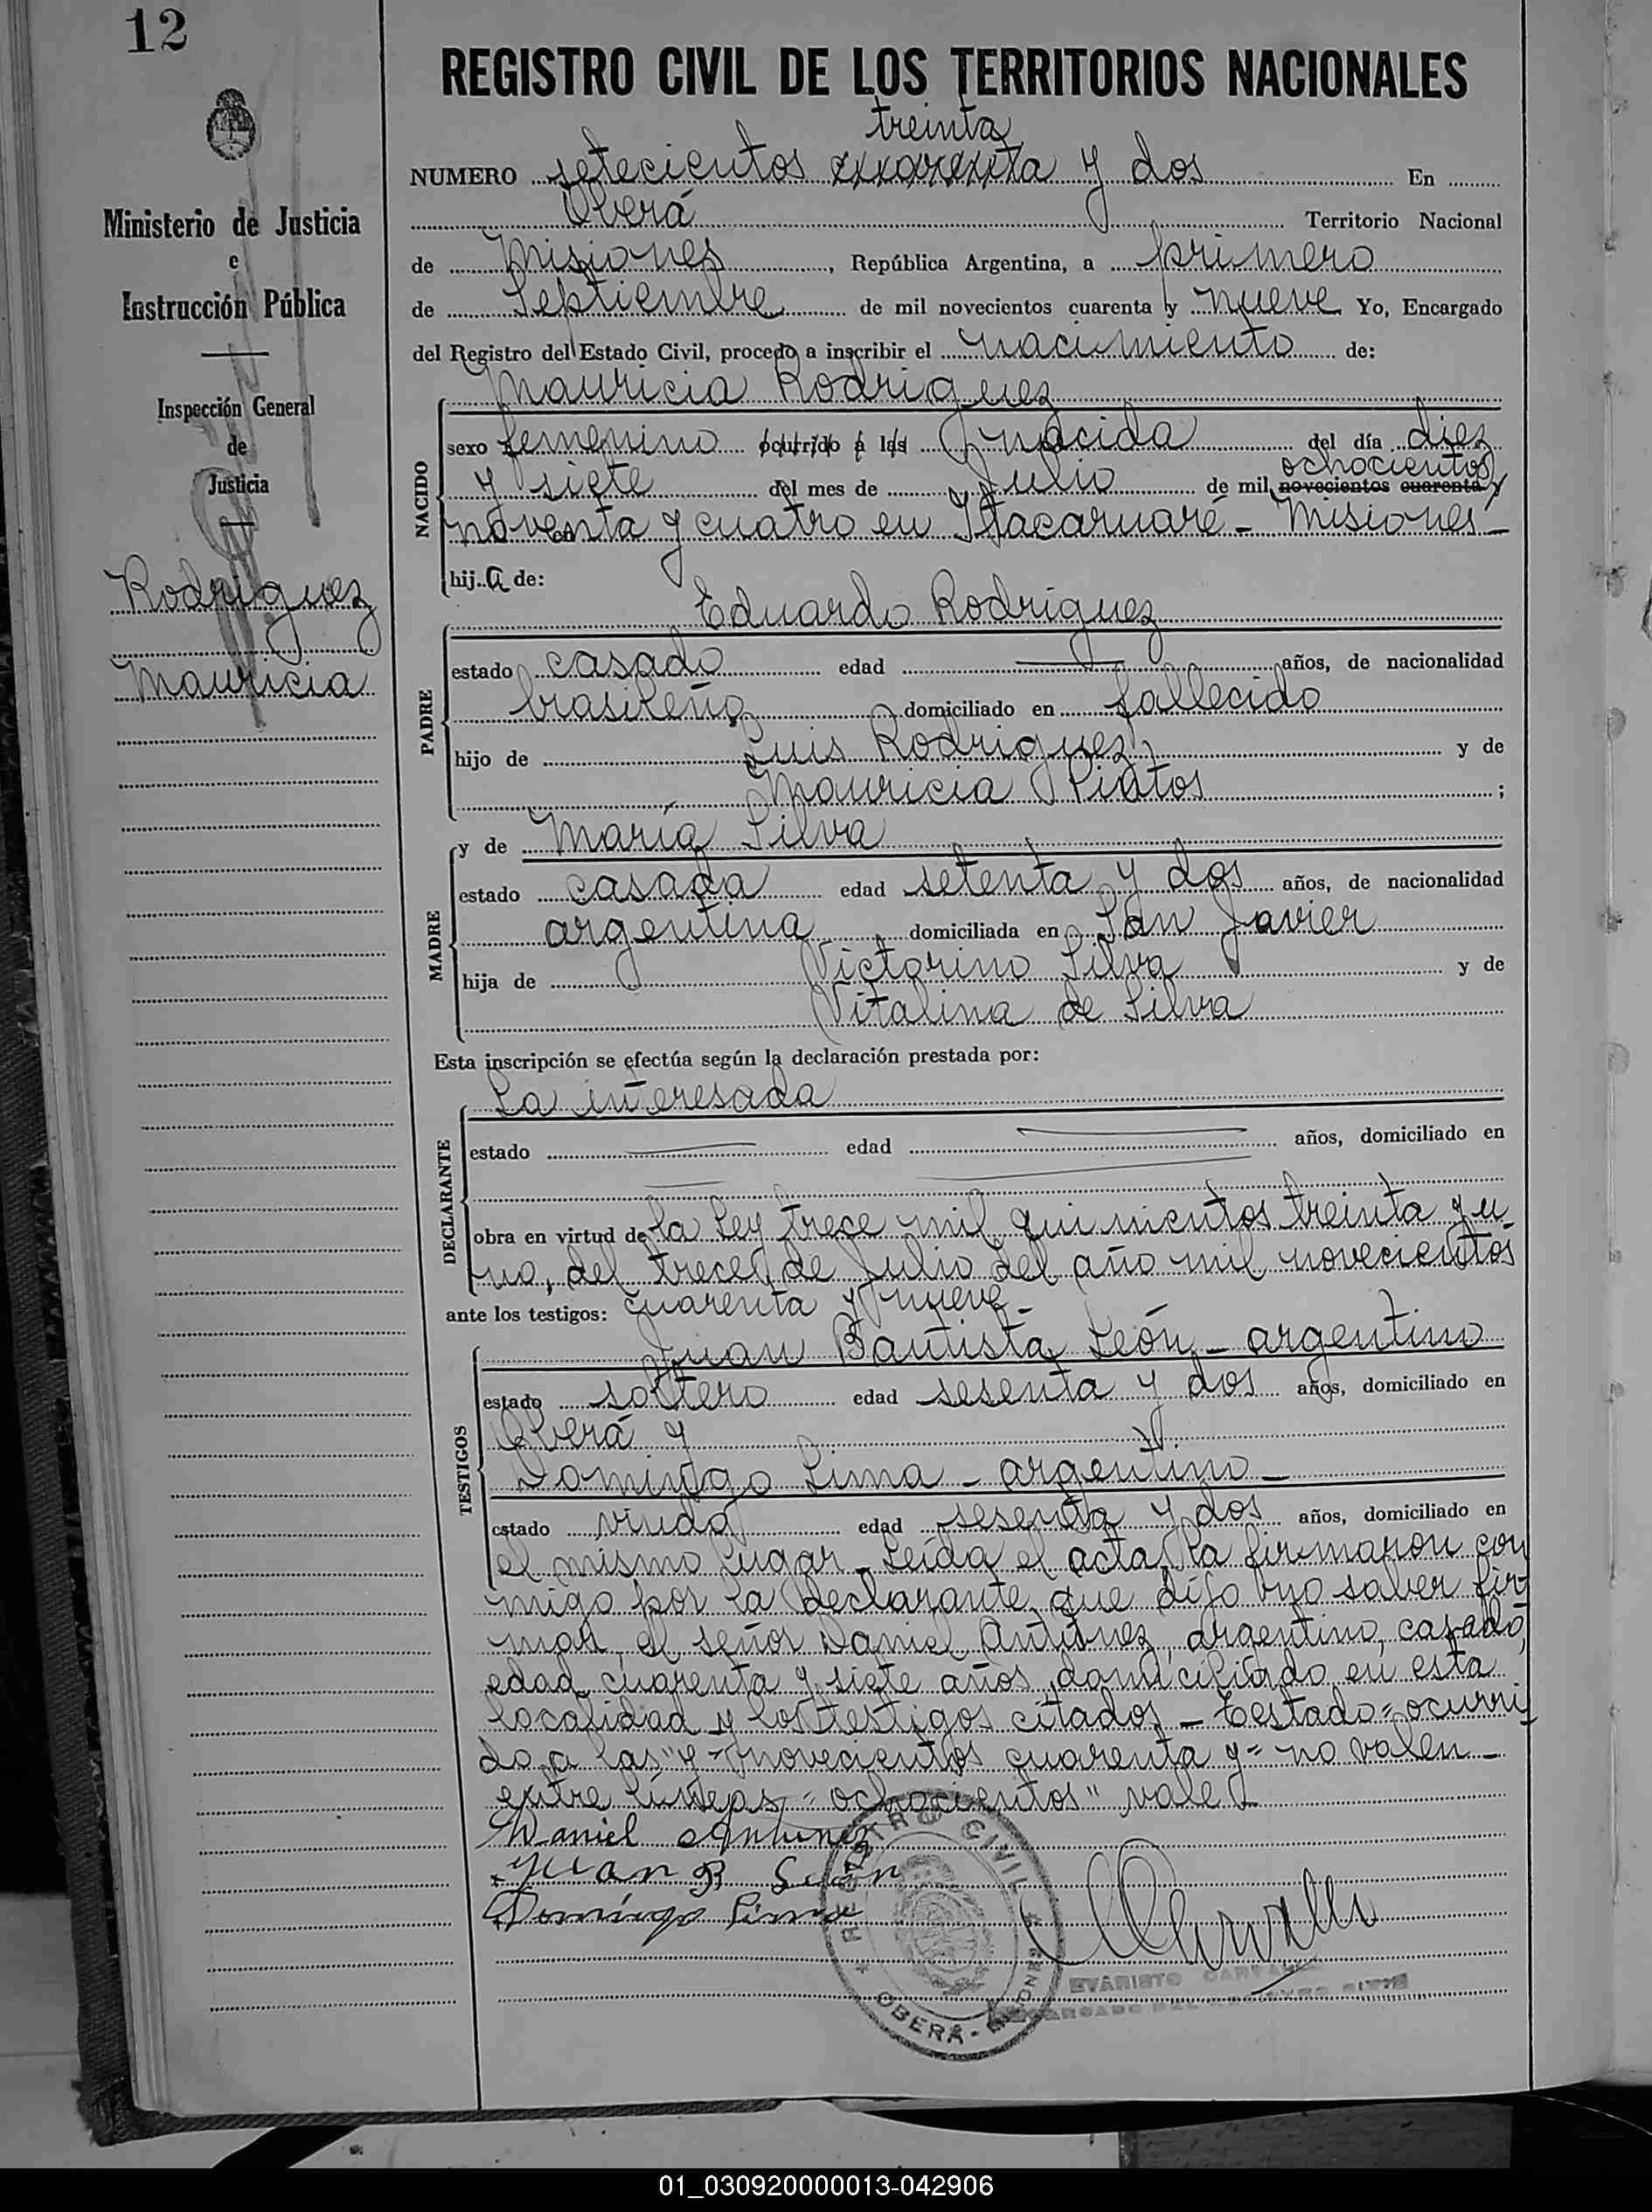 12
REGISTRO CIVIL DE LOS TERRITORIOS NACIONALES
treinta
NUMERO setecientos y dos En
Oberá Territorio Nacional
de Misiones, República Argentina, a primero
de Septiembre de mil novecientos cuarenta y nueve Yo, Encargado
del Registro del Estado Civil, procedo a inscribir el nacimiento de:
Mauricia Rodriguez
Ministerio de Justicia
e
Instrucción Pública
Inspección General
de
Justicia
Rodriguez
Mauricia
NACIDO
sexo femenino ocurrido a las nacida del día diez
ochocientos
y siete del mes de Julio de mil novecientos cuarenta y
noventa y cuatro en Itacaruaré - Misiones -
hij a de:
PADRE
Eduardo Rodriguez
estado casado edad años, de nacionalidad
brasileño domiciliado en fallecido
hijo de Luis Rodriguez y de
Mauricia Pintos ;
MADRE
y de María Silva
estado casada edad setenta y dos años, de nacionalidad
argentina domiciliada en San Javier
hija de Victorino Silva y de
Vitalina de Silva
Esta inscripción se efectúa según la declaración prestada por:
DECLARANTE
La interesada
estado edad años, domiciliado en
obra en virtud de la ley trece mil quinientos treinta y u-
no, del trece de Julio del año mil novecientos
ante los testigos: cuarenta y nueve -
TESTIGOS
Juan Bautista León - argentino
estado soltero edad sesenta y dos años, domiciliado en
Oberá y
Domingo Lima - argentino -
estado viudo edad sesenta y dos años, domiciliado en
el mismo lugar - Leída el acta, la firmaron con
migo por la declarante, que dijo no saber fir-
mar, el señor Daniel Antunez, argentino, casado,
edad cuarenta y siete años, domiciliado en esta
localidad y los testigos citados - Testado = ocurri
do a las" y "novecientos cuarenta y" no valen -
entre líneas = ochocientos" vale -
Daniel Antunez
Juan B León
Domingo Lima
REGISTRO CIVIL
OBERÁ - MISIONES
EVARISTO
ENCARGADO DEL REGISTRO CIVIL
01_030920000013-042906